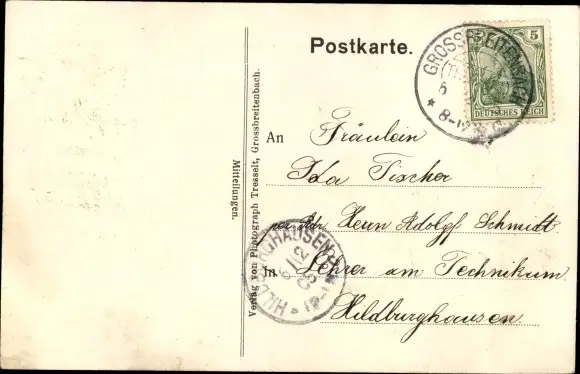 Postkarte.
GROSSBREITENBACH
5
DEUTSCHES REICH
8-
Mitteilungen.
Verlag von Photograph Tresselt, Grossbreitenbach.
An Fräulein
Ida Fischer
per Adr Herrn Adolf Schmidt
In Lehrer am Technikum
Hildburghausen.
HILDBURGHAUSEN